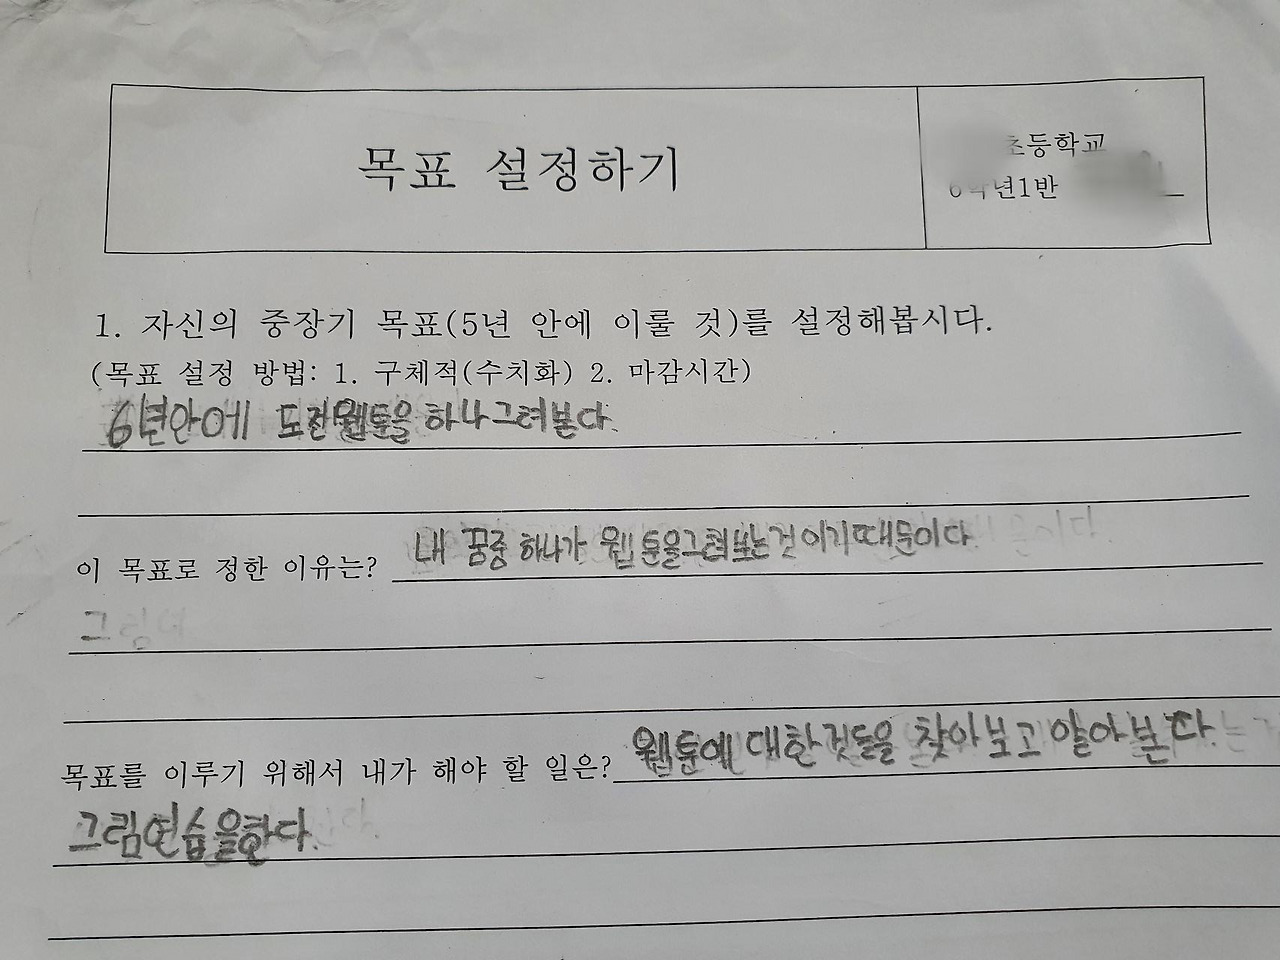 목표 설정하기
초등학교
6학년1반
1. 자신의 중장기 목표(5년 안에 이룰 것)를 설정해봅시다.
(목표 설정 방법: 1. 구체적(수치화) 2. 마감시간)
6년안에 도전웹툰을 하나그려본다.
이 목표로 정한 이유는? 내 꿈중 하나가 웹툰을그려보는것이기때문이다
그림
목표를 이루기 위해서 내가 해야 할 일은? 웹툰에 대한것들을 찾아보고 알아본다.
그림연습을한다.